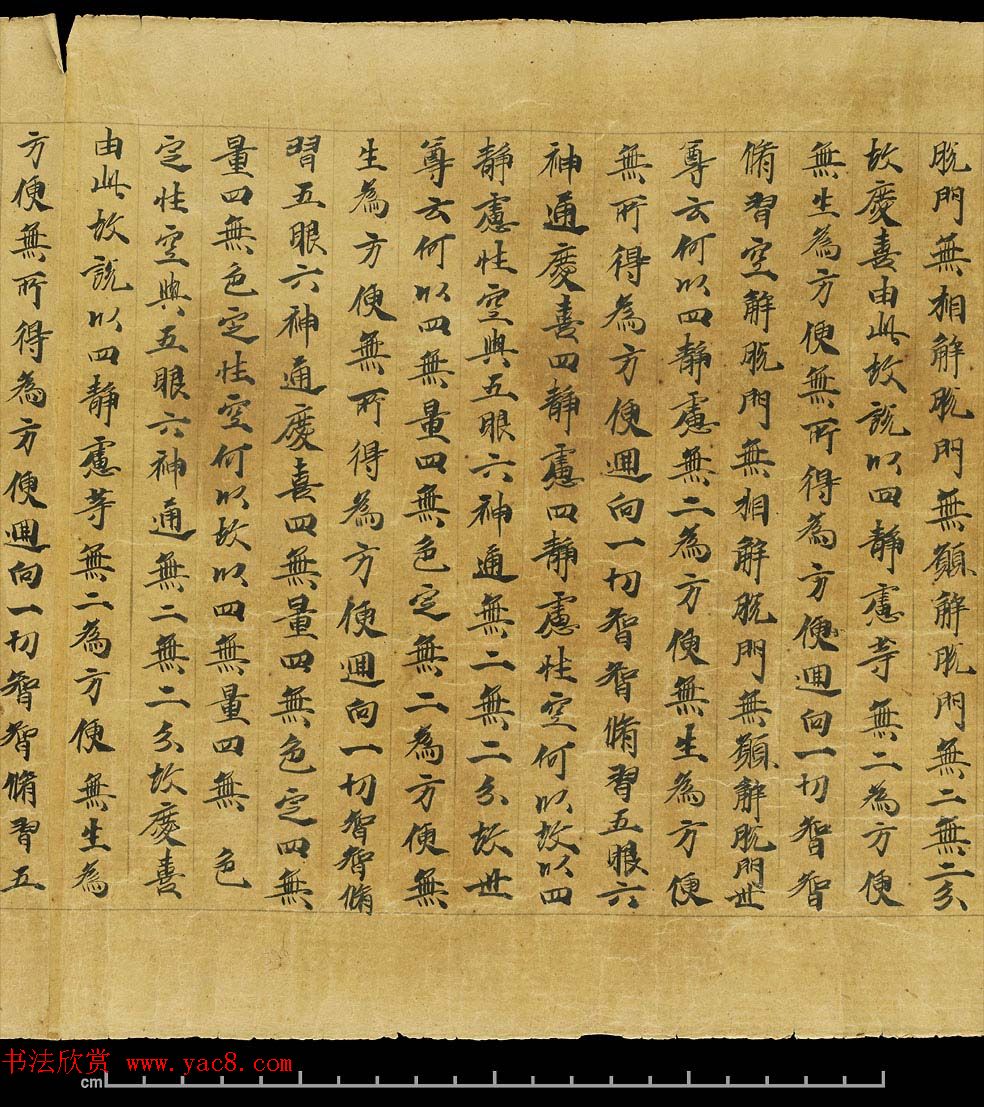 脫門無相解脫門無願解脫門無二無二分
故慶喜由此故說以四靜慮等無二為方便
無生為方便無所得為方便迴向一切智智
脩習空解脫門無相解脫門無願解脫門世
尊云何以四靜慮無二為方便無生為方便
無所得為方便迴向一切智智脩習五眼六
神通慶喜四靜慮四靜慮性空何以故以四
靜慮性空與五眼六神通無二無二分故世
尊云何以四無量四無色定無二為方便無
生為方便無所得為方便迴向一切智智脩
習五眼六神通慶喜四無量四無色定四無
量四無色定性空何以故以四無量四無色
定性空與五眼六神通無二無二分故慶喜
由此故說以四靜慮等無二為方便無生為
方便無所得為方便迴向一切智智脩習五
书法欣赏 www.yac8.com
cm